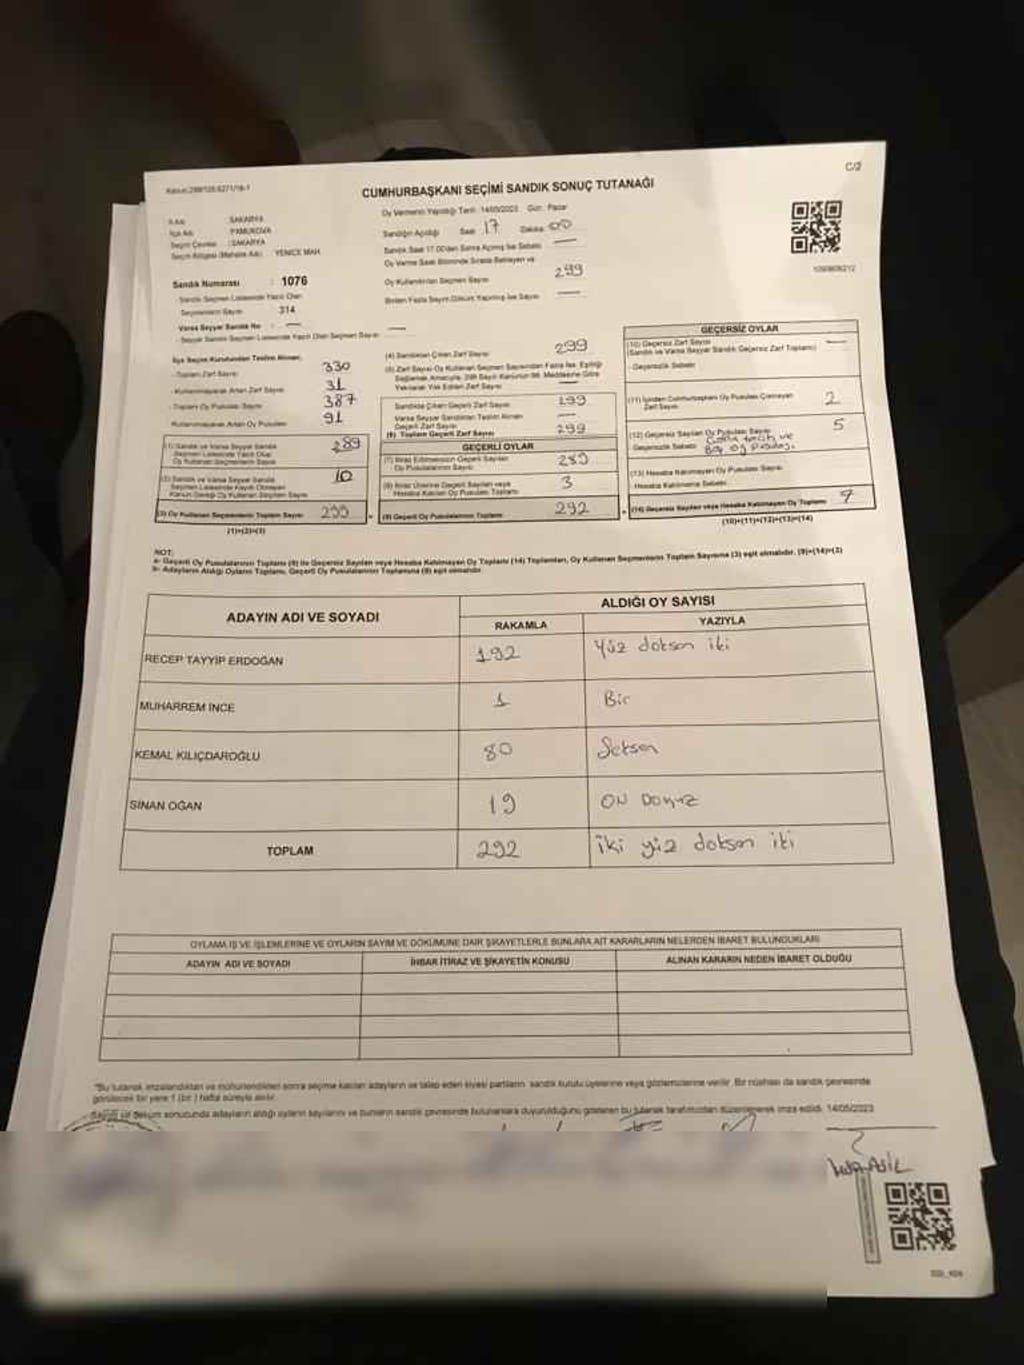 C/2
CUMHURBAŞKANI SEÇİMİ SANDIK SONUÇ TUTANAĞI
İl Adı : SAKARYA
İlçe Adı : PAMUKOVA
Seçim Çevresi : SAKARYA
Seçim Bölgesi (Mahalle Adı) : YENİCE MAH.
Oy Vermenin Yapıldığı Tarih : 14/05/2023 Gün : Pazar
Sandığın Açıldığı Saat 17 Dakika 00
Sandık Saat 17.00'den Sonra Açılmış İse Sebebi —
Oy Verme Saati Bitiminde Sırada Bekleyen ve
Oy Kullandırılan Seçmen Sayısı 299
Birden Fazla Sayım Döküm Yapılmış İse Sayısı —
Sandık Numarası : 1076
Sandık Seçmen Listesinde Yazılı Olan
Seçmenlerin Sayısı 314
Varsa Seyyar Sandık No : —
- Seyyar Sandık Seçmen Listesinde Yazılı Olan Seçmen Sayısı —
İlçe Seçim Kurulundan Teslim Alınan;
- Toplam Zarf Sayısı 330
- Kullanılmayarak Artan Zarf Sayısı 31
- Toplam Oy Pusulası Sayısı 387
- Kullanılmayarak Artan Oy Pusulası 91
(1) Sandık ve Varsa Seyyar Sandık
Seçmen Listesinde Yazılı Olup
Oy Kullanan Seçmenlerin Sayısı 289
(2) Sandık ve Varsa Seyyar Sandık
Seçmen Listesinde Kayıtlı Olmayan
Kanun Gereği Oy Kullanan Seçmen Sayısı 10
(3) Oy Kullanan Seçmenlerin Toplam Sayısı 299
(1)+(2)=(3)
(4) Sandıktan Çıkan Zarf Sayısı 299
(5) Zarf Sayısı Oy Kullanan Seçmen Sayısından Fazla İse, Eşitliği
Sağlamak Amacıyla, 298 Sayılı Kanunun 98. Maddesine Göre
Yakılarak Yok Edilen Zarf Sayısı —
Sandıkta Çıkan Geçerli Zarf Sayısı 299
Varsa Seyyar Sandıktan Teslim Alınan
Geçerli Zarf Sayısı —
(6) Toplam Geçerli Zarf Sayısı 299
GEÇERLİ OYLAR
(7) İtiraz Edilmeksizin Geçerli Sayılan
Oy Pusulalarının Sayısı 289
(8) İtiraz Üzerine Geçerli Sayılan veya
Hesaba Katılan Oy Pusulası Toplamı 3
(9) Geçerli Oy Pusulalarının Toplamı 292
GEÇERSİZ OYLAR
(10) Geçersiz Zarf Sayısı
(Sandık ve Varsa Seyyar Sandık Geçersiz Zarf Toplamı) —
- Geçersizlik Sebebi
(11) İçinden Cumhurbaşkanı Oy Pusulası Çıkmayan
Zarf Sayısı 2
(12) Geçersiz Sayılan Oy Pusulası Sayısı 5
Geçersizlik Sebebi
(13) Hesaba Katılmayan Oy Pusulası Sayısı
Hesaba Katılmama Sebebi
(14) Geçersiz Sayılan veya Hesaba Katılmayan Oy Toplamı 7
(10)+(11)+(12)+(13)=(14)
NOT:
a- Geçerli Oy Pusulalarının Toplamı (9) ile Geçersiz Sayılan veya Hesaba Katılmayan Oy Toplamı (14) Toplamları, Oy Kullanan Seçmenlerin Toplam Sayısına (3) eşit olmalıdır. (9)+(14)=(3)
b- Adayların Aldığı Oyların Toplamı, Geçerli Oy Pusulalarının Toplamına (9) eşit olmalıdır.
ADAYIN ADI VE SOYADI ALDIĞI OY SAYISI
RAKAMLA YAZIYLA
RECEP TAYYİP ERDOĞAN 192 Yüz doksan iki
MUHARREM İNCE 1 Bir
KEMAL KILIÇDAROĞLU 80 Seksen
SİNAN OĞAN 19 ON DOKUZ
TOPLAM 292 iki yüz doksan iki
OYLAMA İŞ VE İŞLEMLERİNE VE OYLARIN SAYIM VE DÖKÜMÜNE DAİR ŞİKAYETLERLE BUNLARA AİT KARARLARIN NELERDEN İBARET BULUNDUKLARI
ADAYIN ADI VE SOYADI İHBAR İTİRAZ VE ŞİKAYETİN KONUSU ALINAN KARARIN NEDEN İBARET OLDUĞU
"Bu tutanak imzalandıktan ve mühürlendikten sonra seçime katılan adayların ve talep eden siyasi partilerin sandık kurulu üyelerine veya gözlemcilerine verilir. Bir nüshası da sandık çevresinde
görülecek bir yere 1 (bir) hafta süreyle asılır.
Sayım ve döküm sonucunda adayların aldığı oyların sayılarını ve bunların sandık çevresinde bulunanlara duyurulduğunu gösteren bu tutanak tarafımızdan düzenlenerek imza edildi. 14/05/2023